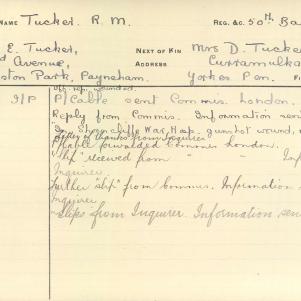 NAME Tucker. R. M. REG. &C. 50TH. Ba
E. Tucker, NEXT OF KIN Mrs D. Tucke
d Avenue, ADDRESS Curramulka
ston Park, Payneham. Yorkes Pen.
Off. rep. wounded.
I/P P/Cable sent Commis. London.
Reply from Commis. Information
In Shorncliffe War Hosp. gunshot wound,
Letter of thanks from Inquirer
P/Cable forwarded Commis London.
"Slip" received from " " Inf
Inquirer.
Further "slip" from Commis. Information
Inquirer
Slips from Inquirer. Information sen